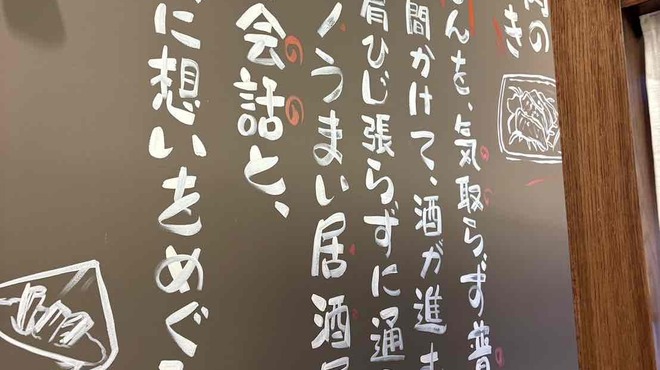 の
き
んを、気取らず普
間かけて、酒が進ま
肩ひじ張らずに通
うまい居酒屋
会話と、
に想いをめぐ